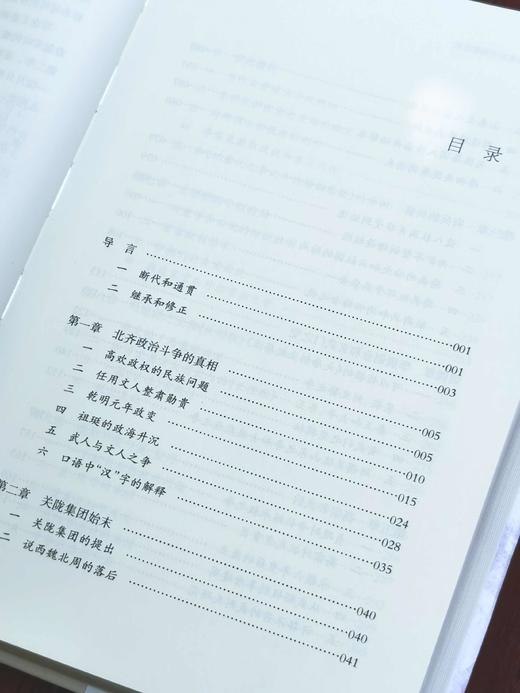 目 录
导 言……001
一 断代和通贯……001
二 继承和修正……003
第一章 北齐政治斗争的真相……005
一 高欢政权的民族问题……005
二 任用文人整肃勋贵……010
三 乾明元年政变……015
四 祖珽的政海升沉……024
五 武人与文人之争……028
六 口语中“汉”字的解释……035
第二章 关陇集团始末……040
一 关陇集团的提出……040
二 说西魏北周的落后……041